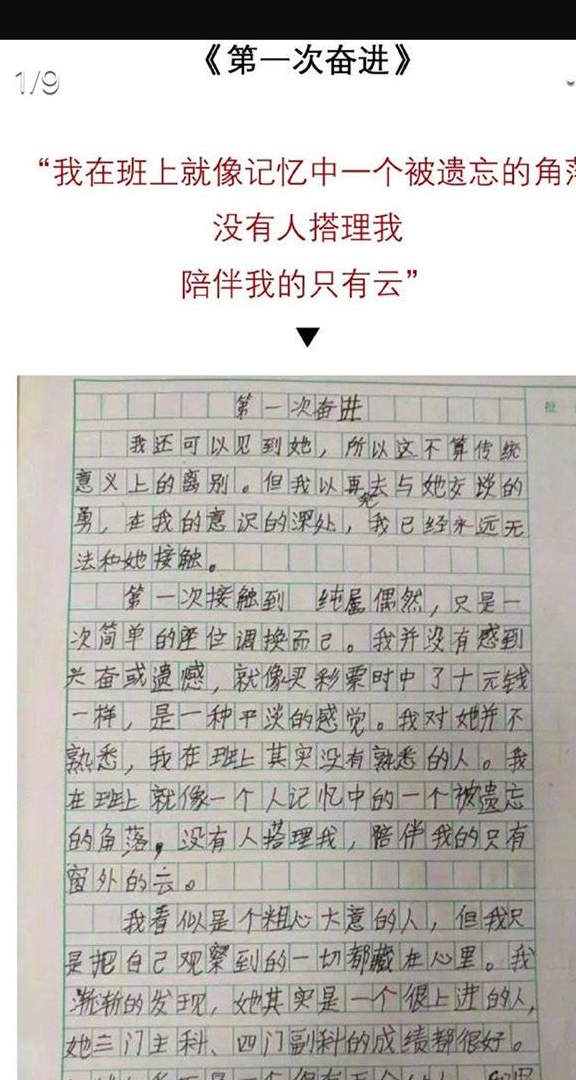 《第一次奋进》
1/9
“我在班上就像记忆中一个被遗忘的角落
没有人搭理我
陪伴我的只有云”
第一次奋进
批
我还可以见到她，所以这不算传统
意义上的离别。但我以再去与她交谈的
勇，在我的意识的深处，我已经永远无
法和她接触。
第一次接触到 纯属偶然，只是一
次简单的座位调换而已。我并没有感到
兴奋或遗憾，就像买彩票时中了十元钱
一样，是一种平淡的感觉。我对她并不
熟悉，我在班上其实没有熟悉的人。我
在班上就像一个人记忆中的一个被遗忘
的角落，没有人搭理我，陪伴我的只有
窗外的云。
我看似是个粗心大意的人，但我只
是把自己观察到的一切都藏在心里。我
渐渐的发现，她其实是一个很上进的人，
她三门主科、四门副科的成绩都很好。